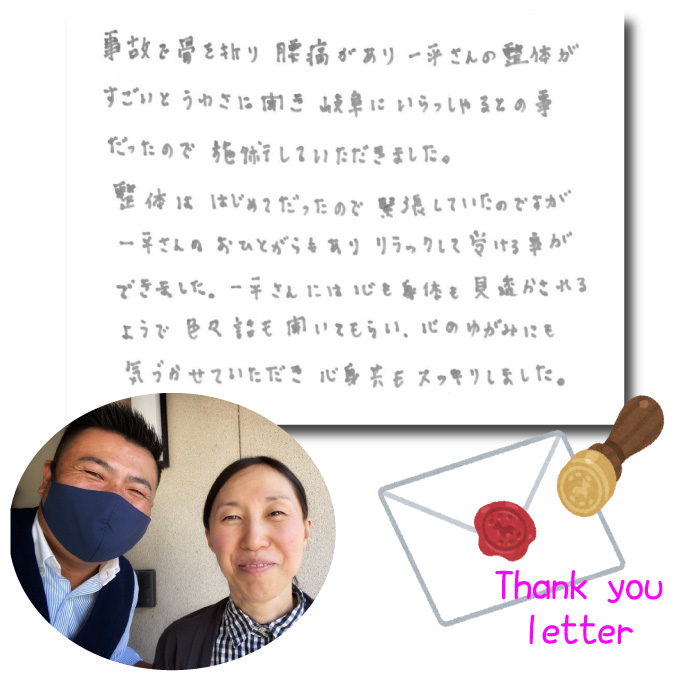 事故で骨を折り 腰痛があり 一平さんの整体が
すごいと うわさに聞き 岐阜にいらっしゃるとの事
だったので 施術していただきました。
整体は はじめてだったので 緊張していたのですが
一平さんの おひとがらもあり リラックスして 受ける事が
できました。一平さんには 心も身体も 見透かされる
ようで 色々話も 聞いてもらい、心のゆがみにも
気づかせていただき 心身共も スッキリしました。
Thank you
letter